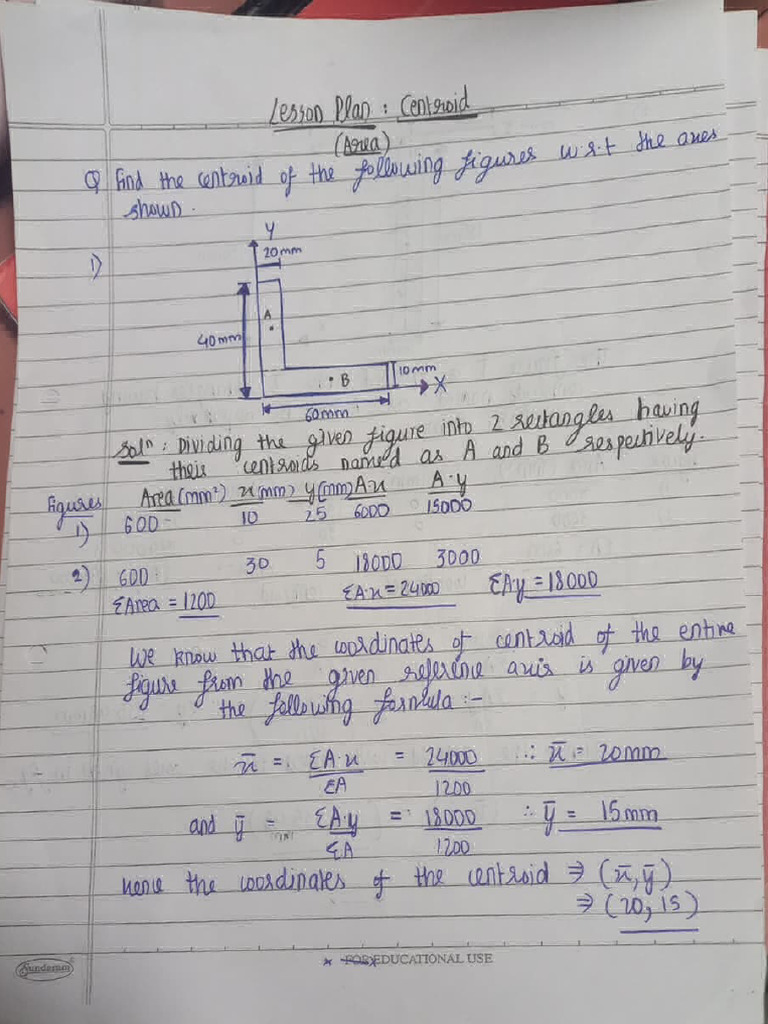 Lesson Plan : Centroid
(Area)
Q Find the centroid of the following figures w.r.t the axes
shown.
1)
Y
20mm
A
40mm
10mm
B
X
60mm
Solⁿ : Dividing the given figure into 2 rectangles having
their centroids named as A and B respectively.
Figures Area(mm²) x(mm) y(mm) Ax A·y
1) 600 10 25 6000 15000
2) 600 30 5 18000 3000
ΣArea = 1200 ΣA·x = 24000 ΣAy = 18000
We know that the coordinates of centroid of the entire
figure from the given reference axis is given by
the following formula :-
x̄ = ΣA·x / ΣA = 24000 / 1200 ∴ x̄ = 20mm
and ȳ = ΣA·y / ΣA = 18000 / 1200 ∴ ȳ = 15mm
Hence the coordinates of the centroid ⇒ (x̄, ȳ)
⇒ (20, 15)
Sundaram
FOR EDUCATIONAL USE